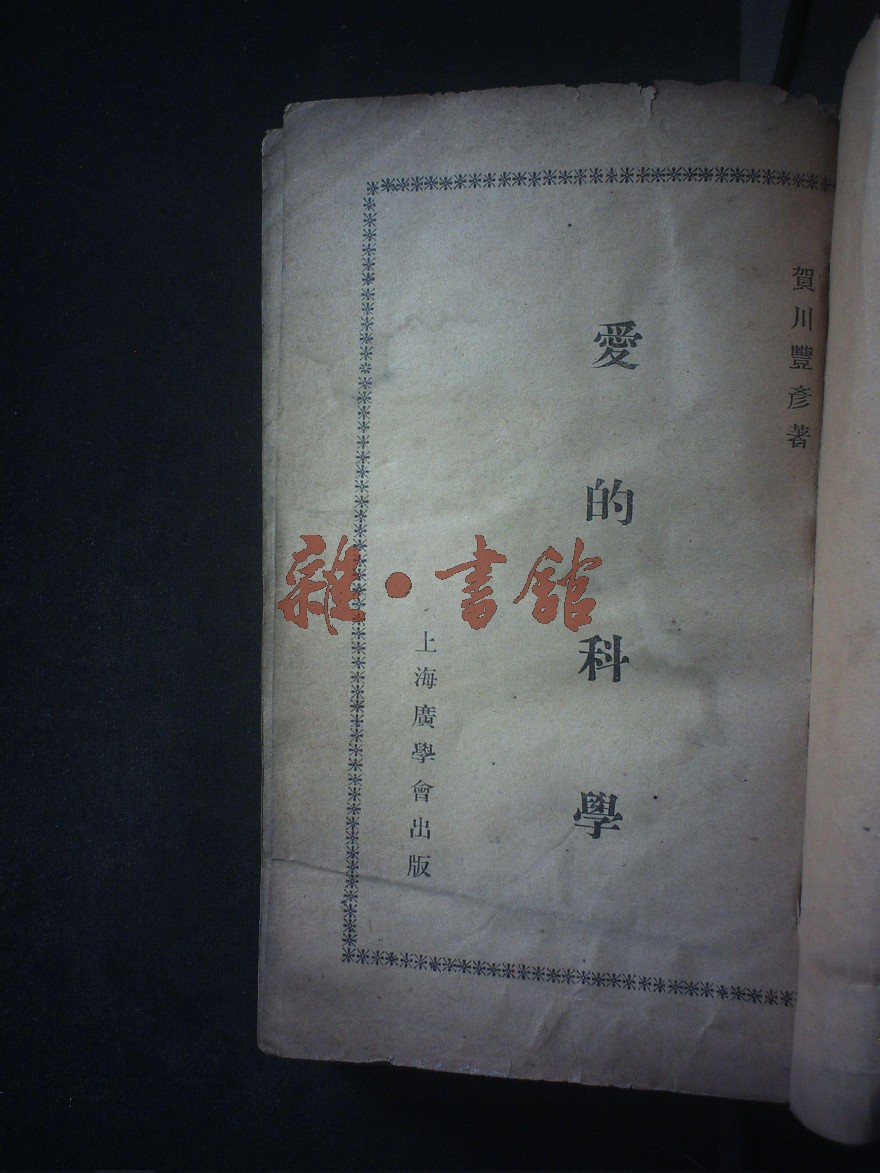 賀川豐彥著
愛的科學
上海廣學會出版
雜·書館